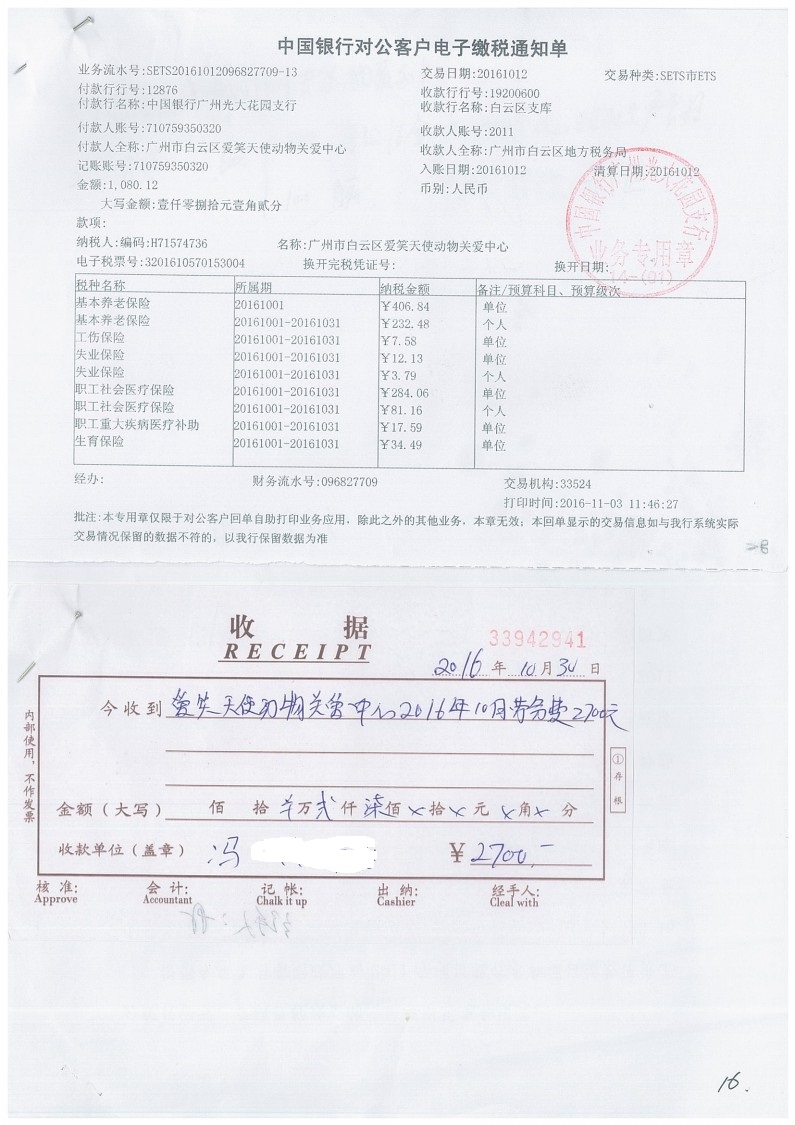 中国银行对公客户电子缴税通知单
业务流水号:SETS20161012096827709-13 交易日期:20161012 交易种类:SETS市ETS
付款行行号:12876 收款行行号:19200600
付款行名称:中国银行广州光大花园支行 收款行名称:白云区支库
付款人账号:710759350320 收款人账号:2011
付款人全称:广州市白云区爱笑天使动物关爱中心 收款人全称:广州市白云区地方税务局
记账账号:710759350320 入账日期:20161012 清算日期:20161012
金额:1,080.12 币别:人民币
大写金额:壹仟零捌拾元壹角贰分
款项:
纳税人:编码:H71574736 名称:广州市白云区爱笑天使动物关爱中心
电子税票号:3201610570153004 换开完税凭证号: 换开日期:
中国银行广州光大花园支行
业务专用章
税种名称 所属期 纳税金额 备注/预算科目、预算级次
基本养老保险 20161001 ¥406.84 单位
基本养老保险 20161001-20161031 ¥232.48 个人
工伤保险 20161001-20161031 ¥7.58 单位
失业保险 20161001-20161031 ¥12.13 单位
失业保险 20161001-20161031 ¥3.79 个人
职工社会医疗保险 20161001-20161031 ¥284.06 单位
职工社会医疗保险 20161001-20161031 ¥81.16 个人
职工重大疾病医疗补助 20161001-20161031 ¥17.59 单位
生育保险 20161001-20161031 ¥34.49 单位
经办: 财务流水号:096827709 交易机构:33524
打印时间:2016-11-03 11:46:27
批注:本专用章仅限于对公客户回单自助打印业务应用，除此之外的其他业务，本章无效；本回单显示的交易信息如与我行系统实际
交易情况保留的数据不符的，以我行保留数据为准
收 据 33942941
RECEIPT
2016年10月30日
今收到爱笑天使动物关爱中心2016年10月劳务费2700元
内部使用，不作发票
①存根
金额（大写） 佰 拾 万贰仟柒佰×拾×元×角×分
收款单位（盖章） 冯 ¥2700.-
核 准: 会 计: 记 帐: 出 纳: 经手人:
Approve Accountant Chalk it up Cashier Cleal with
16.